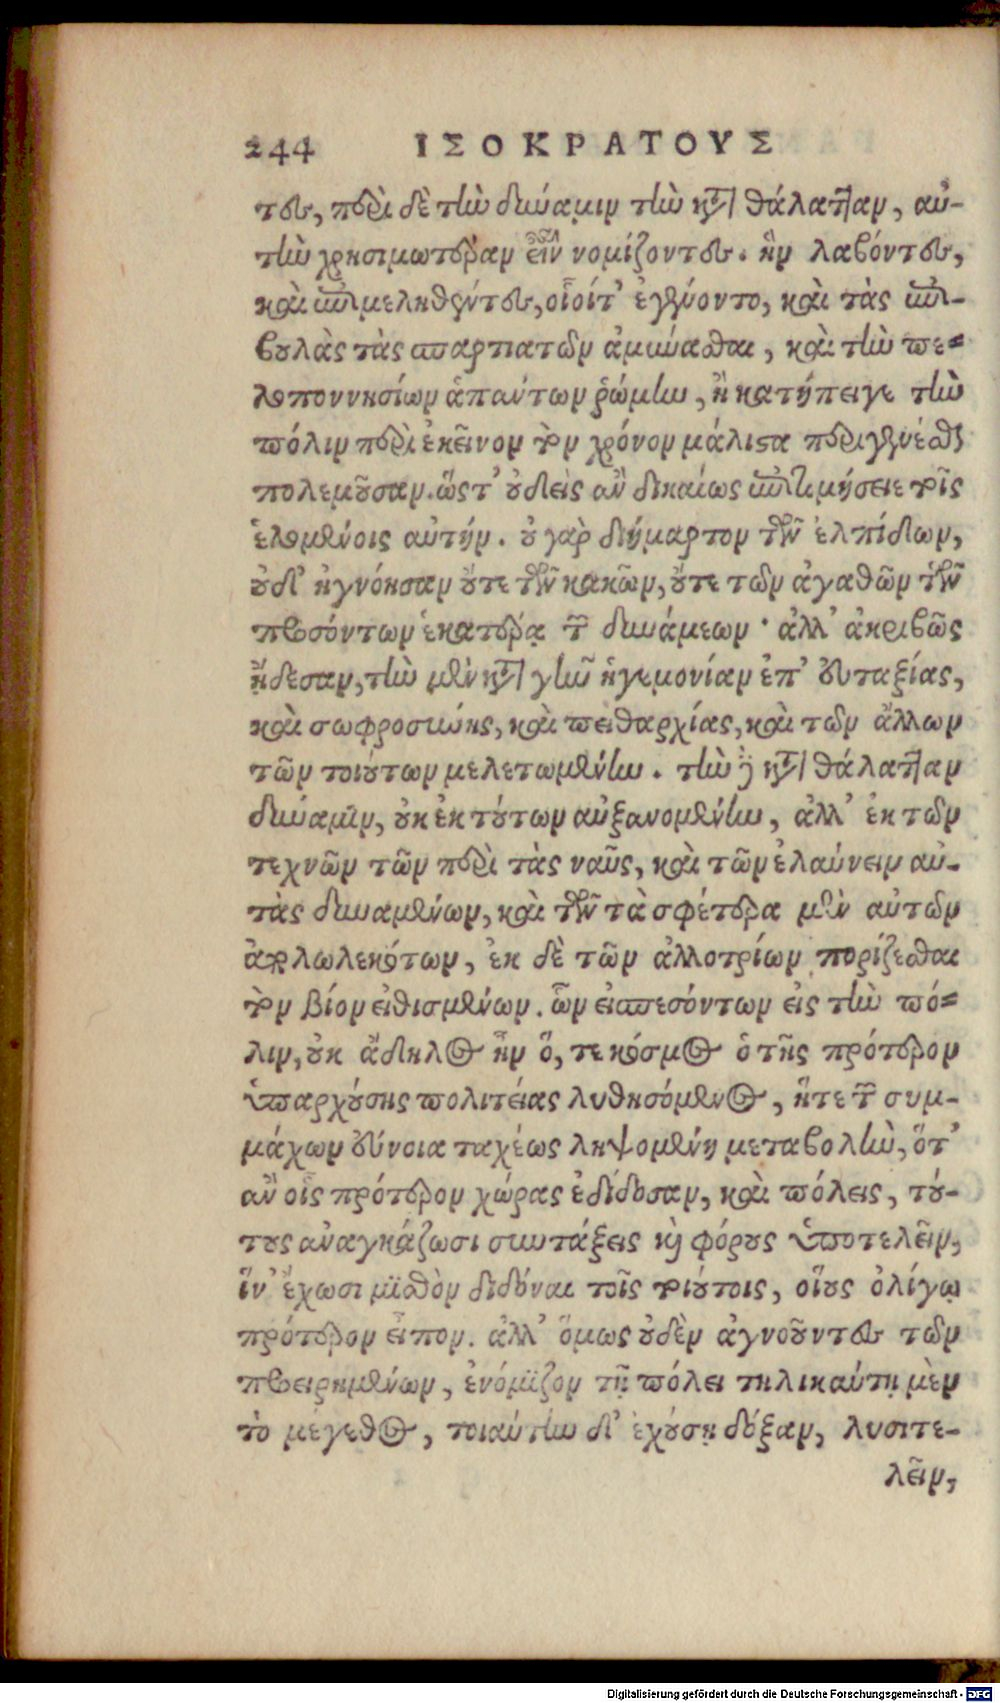 244 ΙΣΟΚΡΑΤΟΥΣ
τες, περὶ δὲ τὴν δύναμιν τὴν κατὰ θάλατταν, αὐ-
τὴν χρησιμωτέραν εἶναι νομίζοντες. ἣν λαβόντες,
καὶ ἐπιμεληθέντες, οἷοίτ' ἐγένοντο, καὶ τὰς ἐπι-
βουλὰς τὰς σπαρτιατῶν ἀμύνασθαι, καὶ τὴν πε-
λοποννησίων ἁπάντων ῥώμην, ἣ κατήπειγε τὴν
πόλιν περὶ ἐκεῖνον τὸν χρόνον μάλιστα περιγενέσθαι
πολεμοῦσαν. ὥστ' οὐδεὶς ἂν δικαίως ἐπιτιμήσειε τοῖς
ἑλομένοις αὐτήν. οὐ γὰρ διήμαρτον τῶν ἐλπίδων,
οὐδ' ἠγνόησαν οὔτε τῶν κακῶν, οὔτε τῶν ἀγαθῶν τῶν
προσόντων ἑκατέρᾳ τῶν δυνάμεων· ἀλλ' ἀκριβῶς
ᾔδεσαν, τὴν μὲν κατὰ γῆν ἡγεμονίαν ἐπ' εὐταξίας,
καὶ σωφροσύνης, καὶ πειθαρχίας, καὶ τῶν ἄλλων
τῶν τοιούτων μελετωμένην. τὴν δὲ κατὰ θάλατταν
δύναμιν, οὐκ ἐκ τούτων αὐξανομένην, ἀλλ' ἐκ τῶν
τεχνῶν τῶν περὶ τὰς ναῦς, καὶ τῶν ἐλαύνειν αὐ-
τὰς δυναμένων, καὶ τῶν τὰ σφέτερα μὲν αὐτῶν
ἀπολωλεκότων, ἐκ δὲ τῶν ἀλλοτρίων πορίζεσθαι
τὸν βίον εἰθισμένων. ὧν εἰσπεσόντων εἰς τὴν πό-
λιν, οὐκ ἄδηλος ἦν ὅ, τε κόσμος ὁ τῆς πρότερον
ὑπαρχούσης πολιτείας λυθησόμενος, ἥτε τῶν συμ-
μάχων εὔνοια ταχέως ληψομένη μεταβολὴν, ὅτ'
ἂν οἷς πρότερον χώρας ἐδίδοσαν, καὶ πόλεις, τού-
τους ἀναγκάζωσι συντάξεις καὶ φόρους ὑποτελεῖν,
ἵν' ἔχωσι μισθὸν διδόναι τοῖς τοιούτοις, οἵους ὀλίγῳ
πρότερον εἶπον. ἀλλ' ὅμως οὐδὲν ἀγνοοῦντες τῶν
προειρημένων, ἐνόμιζον τῇ πόλει τηλικαύτῃ μὲν
τὸ μέγεθος, τοιαύτην δ' ἐχούσῃ δόξαν, λυσιτε-
λεῖν,
Digitalisierung gefördert durch die Deutsche Forschungsgemeinschaft - DFG